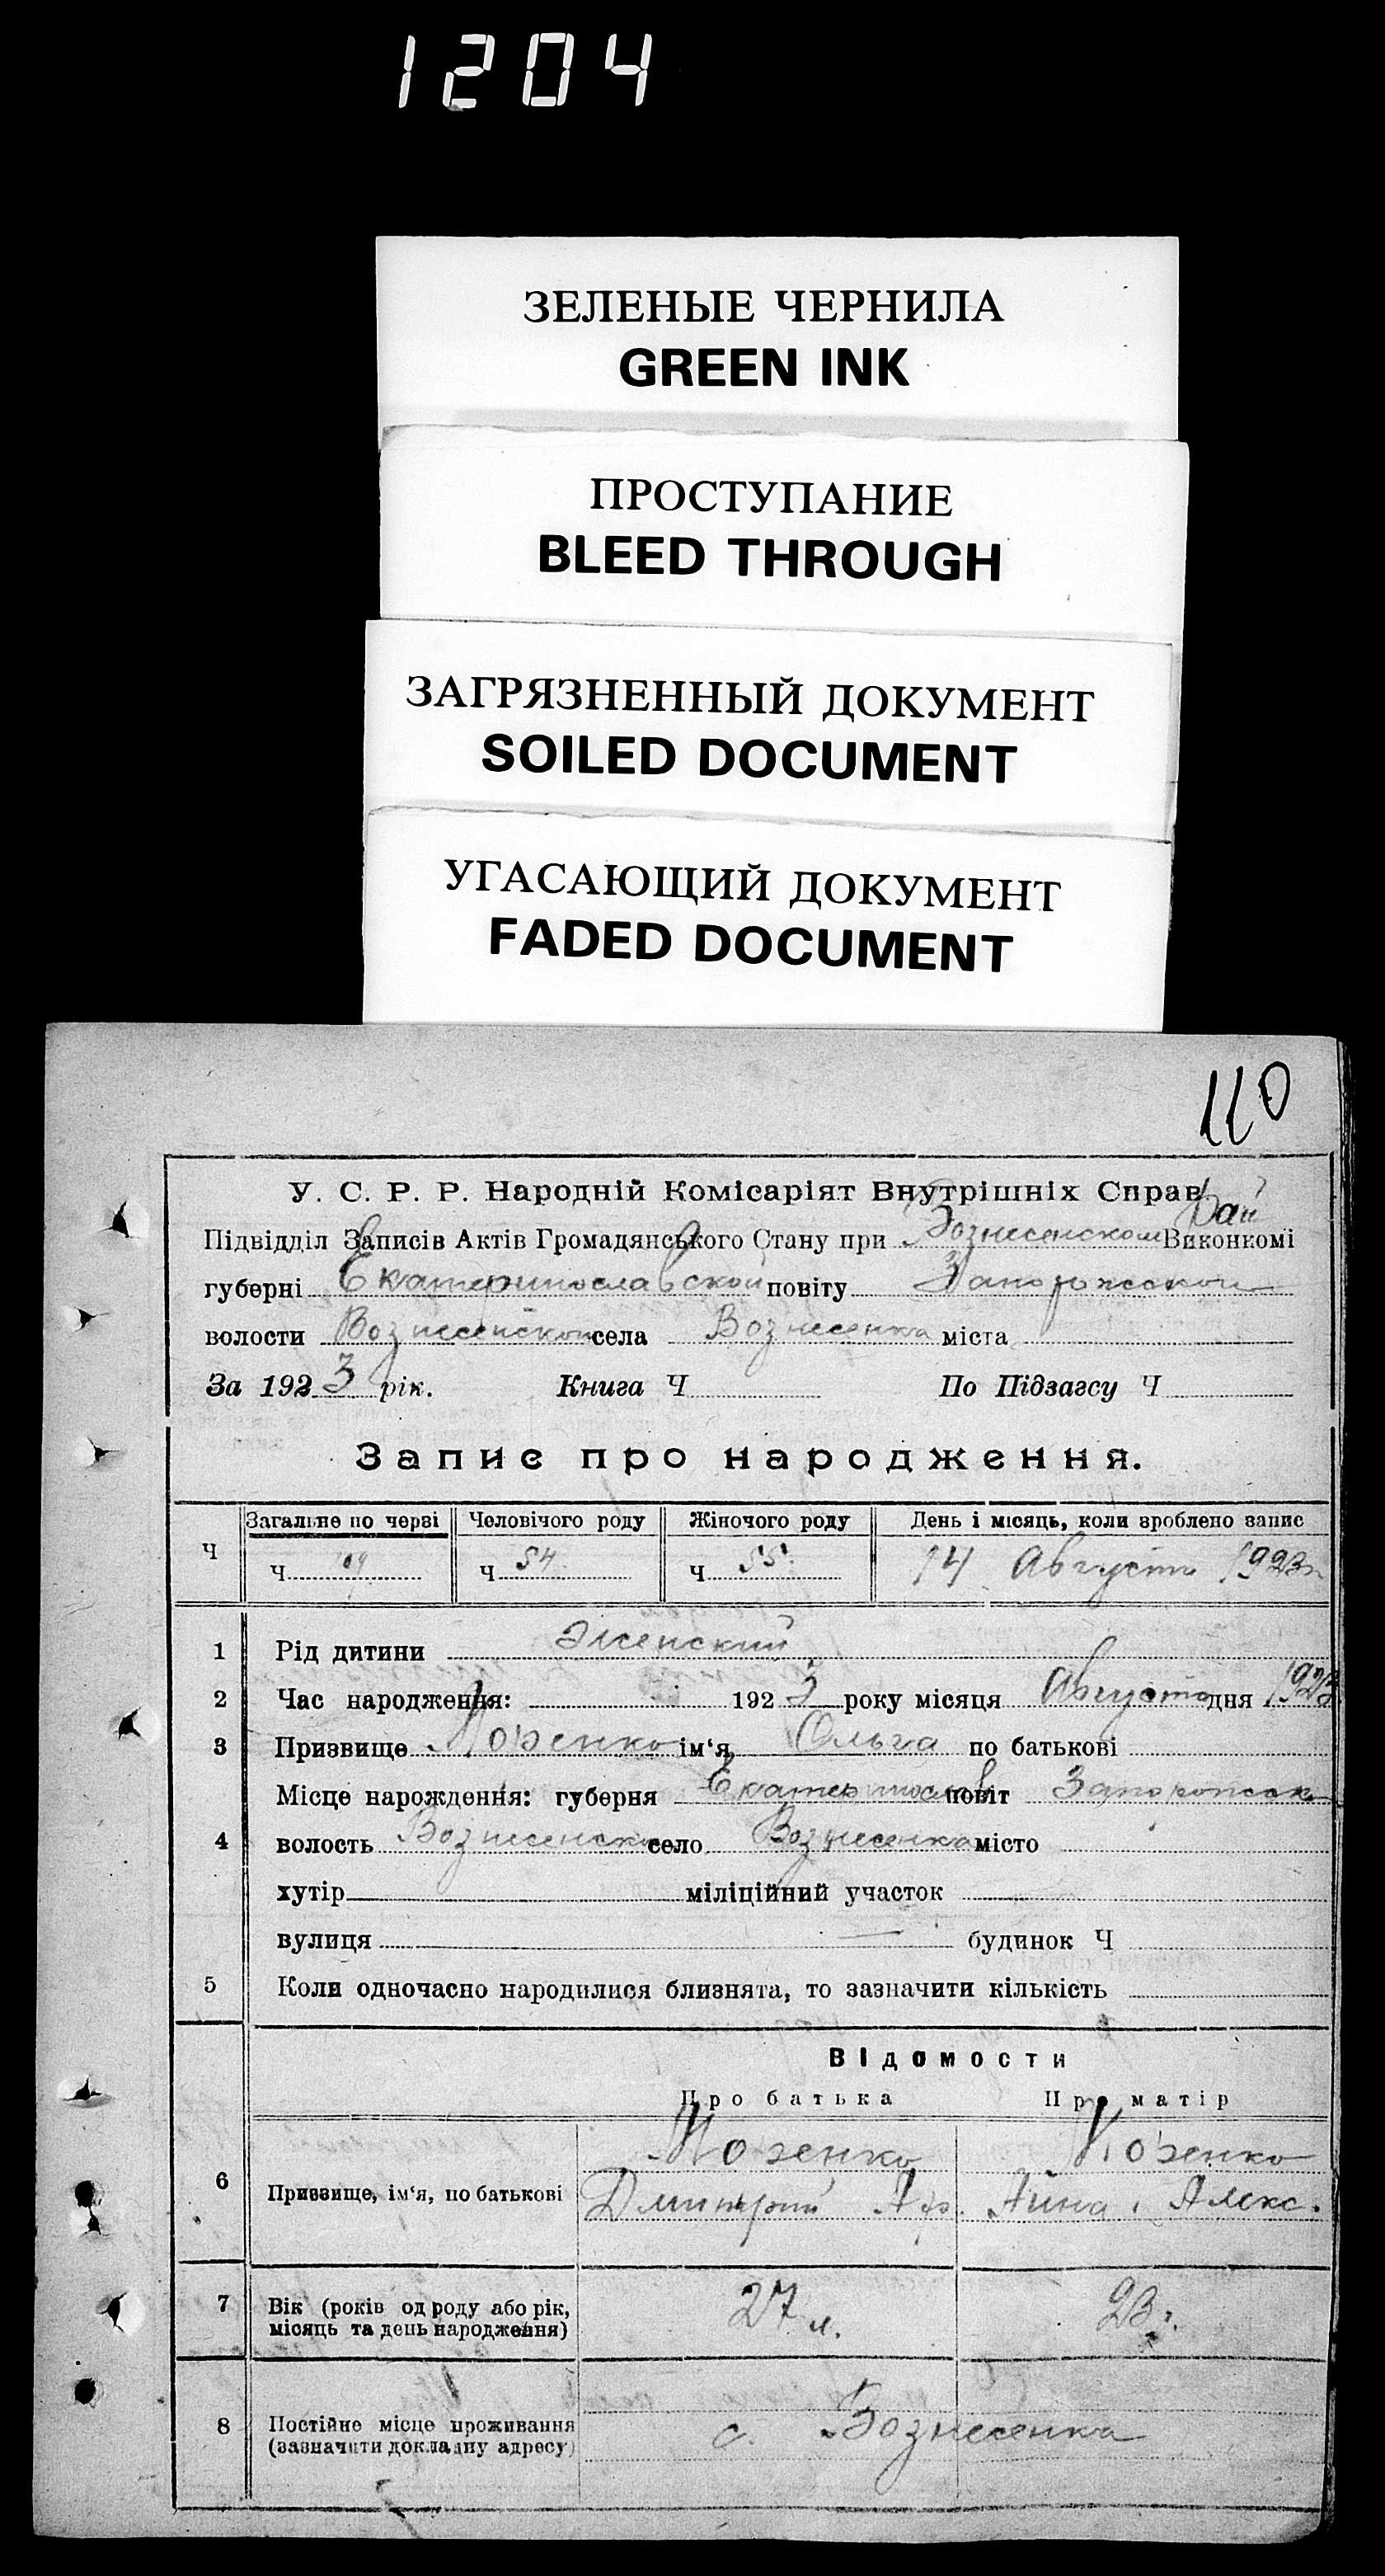 1204
ЗЕЛЕНЫЕ ЧЕРНИЛА
GREEN INK
ПРОСТУПАНИЕ
BLEED THROUGH
ЗАГРЯЗНЕННЫЙ ДОКУМЕНТ
SOILED DOCUMENT
УГАСАЮЩИЙ ДОКУМЕНТ
FADED DOCUMENT
110
У. С. Р. Р. Народній Комісаріят Внутрішніх Справ
Підвідділ Записів Актів Громадянського Стану при Вознесенском Рай Виконкомі
губерні Екатеринославской повіту Запорожской
волости Вознесенской села Вознесенка міста
За 1923 рік. Книга Ч По Підзагсу Ч
Запис про народження.
Ч Загальне по черзі Человічого роду Жіночого роду День і місяць, коли зроблено запис
Ч 109 Ч 54 Ч 55 14 Августа 1923
1 Рід дитини Женский
2 Час народження: 1923 року місяця Августа дня
3 Призвище ім‘я Ольга по батькові
Місце нарождення: губерня Екатеринослав повіт Запорожск
4 волость Вознесенск село Вознесенка місто
хутір міліційний участок
вулиця будинок Ч
5 Коли одночасно народилися близнята, то зазначити кількість
Відомости
Про батька Про матір
6 Призвище, ім‘я, по батькові
Дмитрий Анна Алекс.
7 Вік (років од роду або рік, місяць та день народження) 27 л. 23 г.
8 Постійне місце проживання
(зазначити докладну адресу) с. Вознесенка